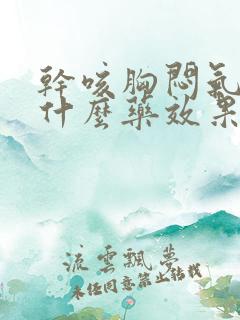 幹咳胸悶氣
什麼藥效果
流雲飄夢
未经同意禁止转载